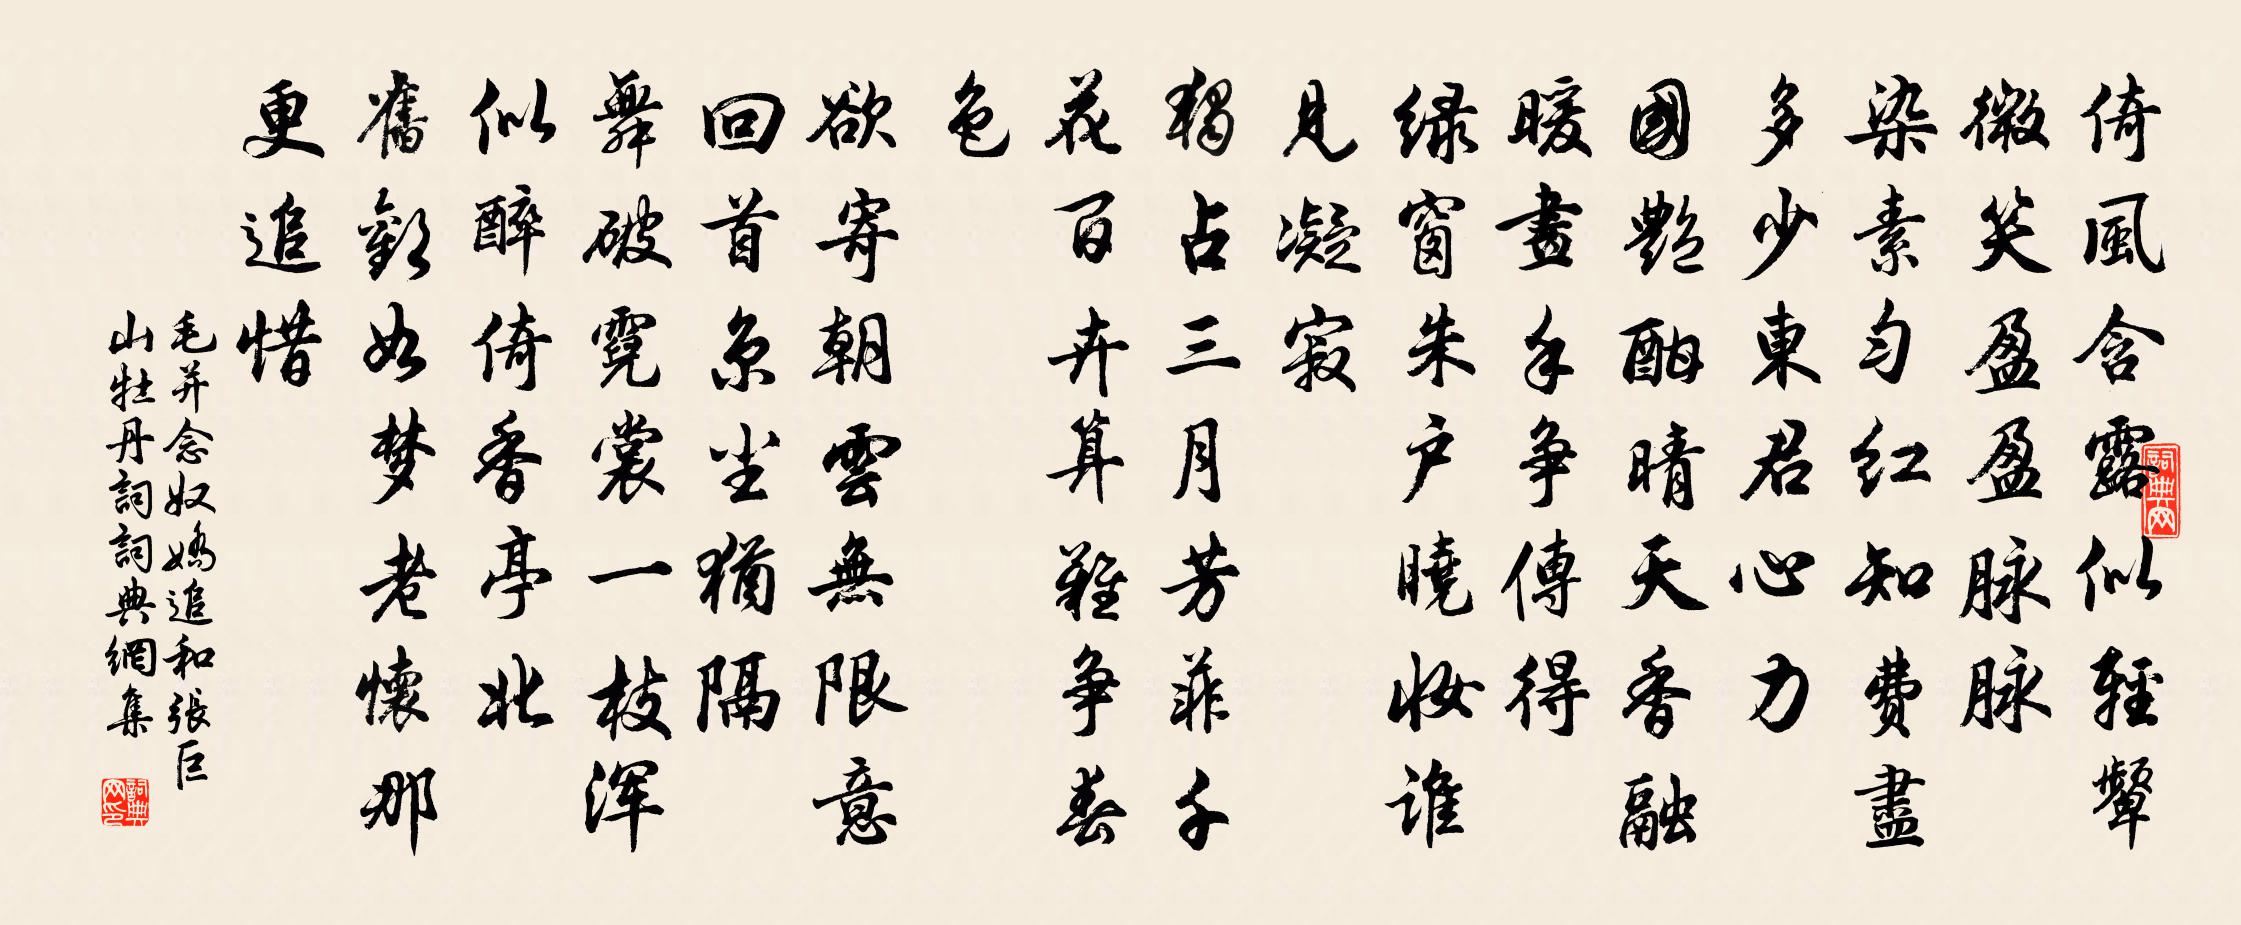 倚風含露似輕顰
微笑盈盈脉脉
染素匀红知費盡
多少東君心力
國艷酣晴天香融
暖畫手争傳得
绿窗朱户曉妆谁
見凝寂
獨占三月芳菲千
花百卉算難争春
色
欲寄朝雲無限意
回首京尘猶隔
舞破霓裳一枝浑
似醉倚香亭北
舊歡如梦老懷那
更追惜
毛并念奴嬌追和張巨
山牡丹詞詞典網集
詞典网
詞典网印